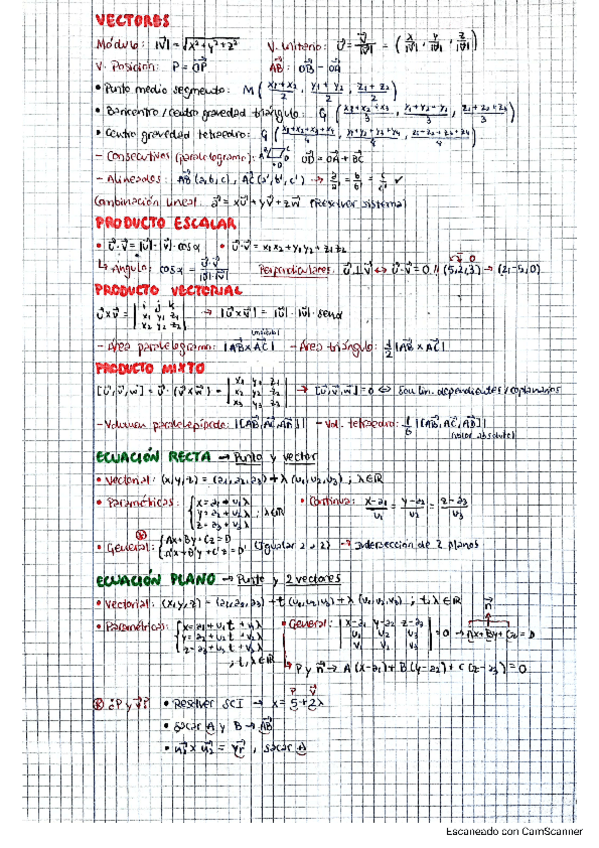 VECTORES
Módulo: |v⃗| = √(x²+y²+z²)   V. Unitario: U⃗ = v⃗/|v⃗| = (x/|v⃗|, y/|v⃗|, z/|v⃗|)
V. Posición: P = OP⃗   AB⃗: OB⃗ - OA⃗
• Punto medio segmento: M((x1+x2)/2, (y1+y2)/2, (z1+z2)/2)
• Baricentro / centro gravedad triángulo: G((x1+x2+x3)/3, (y1+y2+y3)/3, (z1+z2+z3)/3)
• Centro gravedad tetraedro: G((x1+x2+x3+x4)/4, (y1+y2+y3+y4)/4, (z1+z2+z3+z4)/4)
- Consecutivos (paralelogramo): OD⃗ = OA⃗ + BC⃗
- Alineados: AB⃗(a,b,c), AC⃗(a',b',c') → a/a' = b/b' = c/c' ✓
Combinación lineal: a⃗ = xU⃗ + yV⃗ + zW⃗ (Resolver sistema)
PRODUCTO ESCALAR
• U⃗·V⃗ = |U⃗|·|V⃗|·cosα   • U⃗·V⃗ = x1x2 + y1y2 + z1z2
↳ ángulo: cosα = U⃗·V⃗/|U⃗|·|V⃗|   Perpendiculares: U⃗⊥V⃗ ↔ U⃗·V⃗ = 0 // (5,2,3) → (2,-5,0)
PRODUCTO VECTORIAL
U⃗×V⃗ = |i j k; x1 y1 z1; x2 y2 z2| → |U⃗×V⃗| = |U⃗|·|V⃗|·senα
- Área paralelogramo: |AB⃗×AC⃗|   - Área triángulo: 1/2|AB⃗×AC⃗|
PRODUCTO MIXTO
[U⃗,V⃗,W⃗] = U⃗·(V⃗×W⃗) = |x1 y1 z1; x2 y2 z2; x3 y3 z3| → [U⃗,V⃗,W⃗] = 0 ⇔ Son lin. dependientes/coplanarios
- Volumen paralelepípedo: |[AB⃗,AC⃗,AD⃗]|   - Vol. tetraedro: 1/6|[AB⃗,AC⃗,AD⃗]|
(valor absoluto)
ECUACIÓN RECTA → Punto y vector
• Vectorial: (x,y,z) = (a1,a2,a3) + λ(v1,v2,v3) ; λ∈ℝ
• Paramétricas: {x = a1 + v1λ; y = a2 + v2λ; z = a3 + v3λ ; λ∈ℝ   • Continua: (x-a1)/v1 = (y-a2)/v2 = (z-a3)/v3
• General: {Ax+By+Cz=D; A'x+B'y+C'z=D' (Igualar 2 a 2) → Intersección de 2 planos
ECUACIÓN PLANO → Punto y 2 vectores
• Vectorial: (x,y,z) = (a1,a2,a3) + t(u1,u2,u3) + λ(v1,v2,v3) ; t,λ∈ℝ
• Paramétricas: {x = a1 + u1t + v1λ; y = a2 + u2t + v2λ; z = a3 + u3t + v3λ ; t,λ∈ℝ   • General: |x-a1 y-a2 z-a3; u1 u2 u3; v1 v2 v3| = 0 → Ax+By+Cz=D n⃗
↳ P y n⃗ → A(x-a1) + B(y-a2) + C(z-a3) = 0
¿P y v⃗?   • Resolver SCI → x = 5+2λ P V⃗
• sacar A y B → AB⃗
• n⃗1 × n⃗2 = v⃗r, sacar A
Escaneado con CamScanner